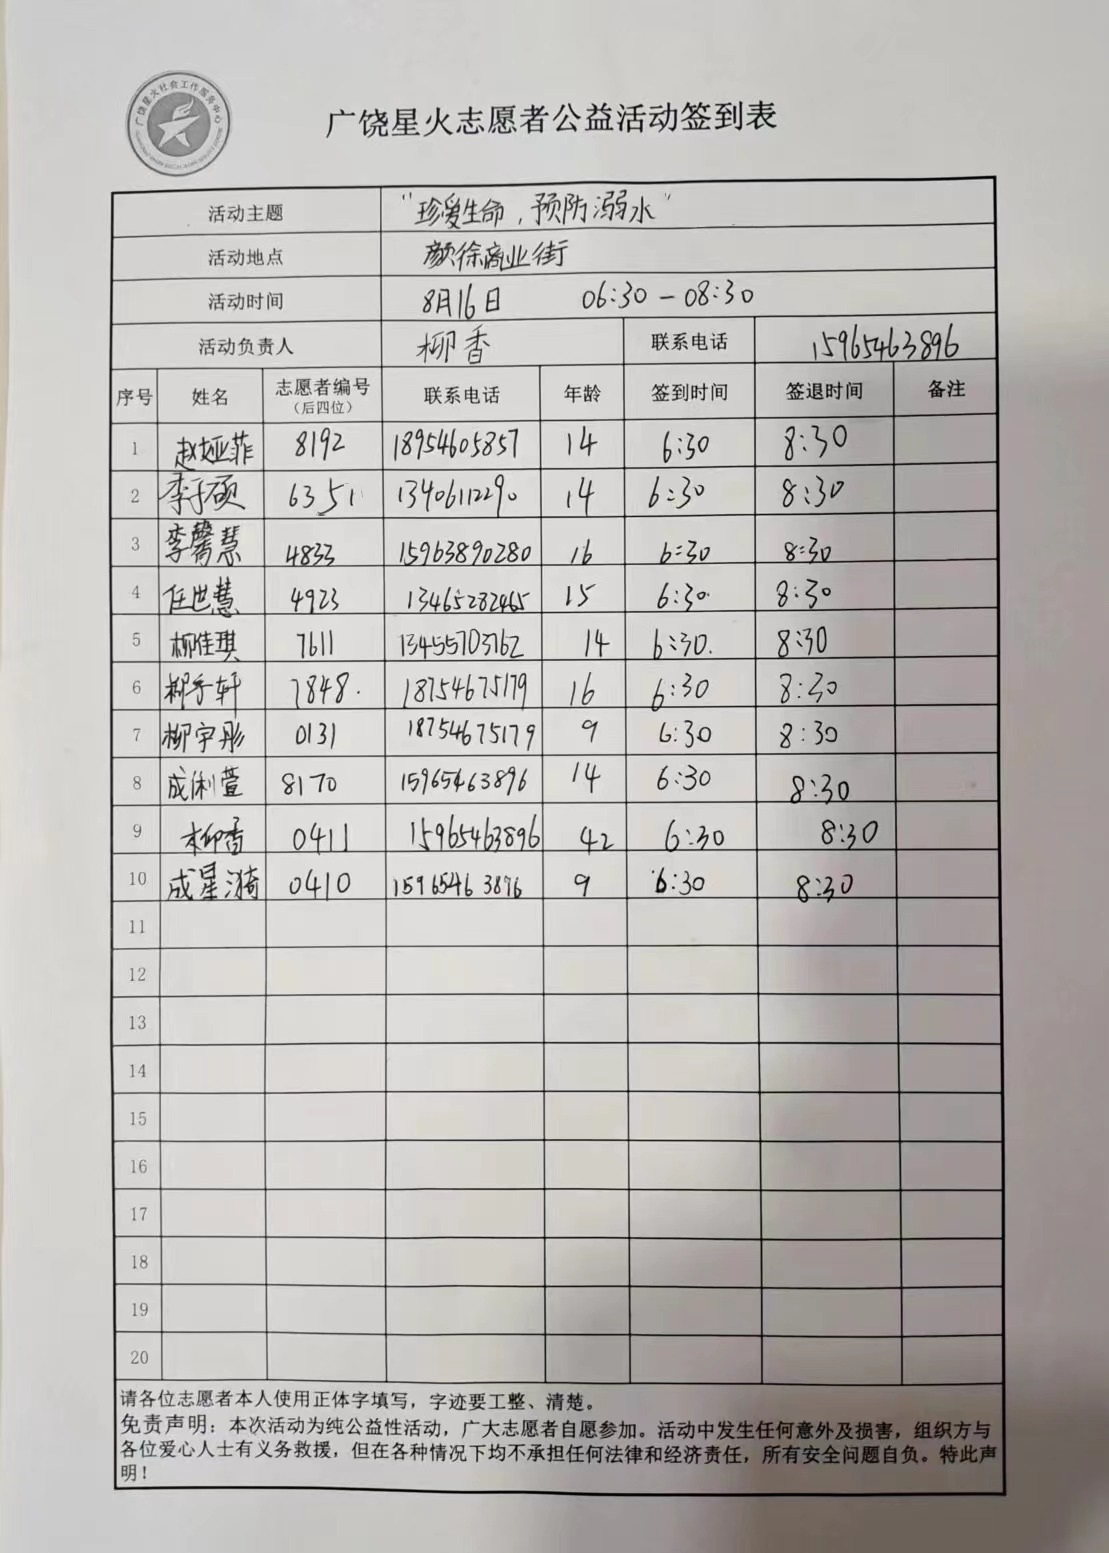 广饶星火社会工作服务中心
广饶星火志愿者公益活动签到表
活动主题 “珍爱生命，预防溺水”
活动地点 颜徐商业街
活动时间 8月16日 06:30-08:30
活动负责人 柳香 联系电话 15965463896
序号 姓名 志愿者编号（后四位） 联系电话 年龄 签到时间 签退时间 备注
1 赵娅菲 8192 18954605857 14 6:30 8:30
2 李子硕 6351 13406112290 14 6:30 8:30
3 李馨慧 4833 15963890280 16 6:30 8:30
4 任世慧 4923 13465282465 15 6:30 8:30
5 柳佳琪 7611 13455703762 14 6:30 8:30
6 柳子轩 7848 18754675179 16 6:30 8:30
7 柳宇彤 0131 18754675179 9 6:30 8:30
8 成俐萱 8170 15965463896 14 6:30 8:30
9 柳香 0411 15965463896 42 6:30 8:30
10 成星漪 0410 15965463896 9 6:30 8:30
11
12
13
14
15
16
17
18
19
20
请各位志愿者本人使用正体字填写，字迹要工整、清楚。
免责声明：本次活动为纯公益性活动，广大志愿者自愿参加。活动中发生任何意外及损害，组织方与
各位爱心人士有义务救援，但在各种情况下均不承担任何法律和经济责任，所有安全问题自负。特此声
明！